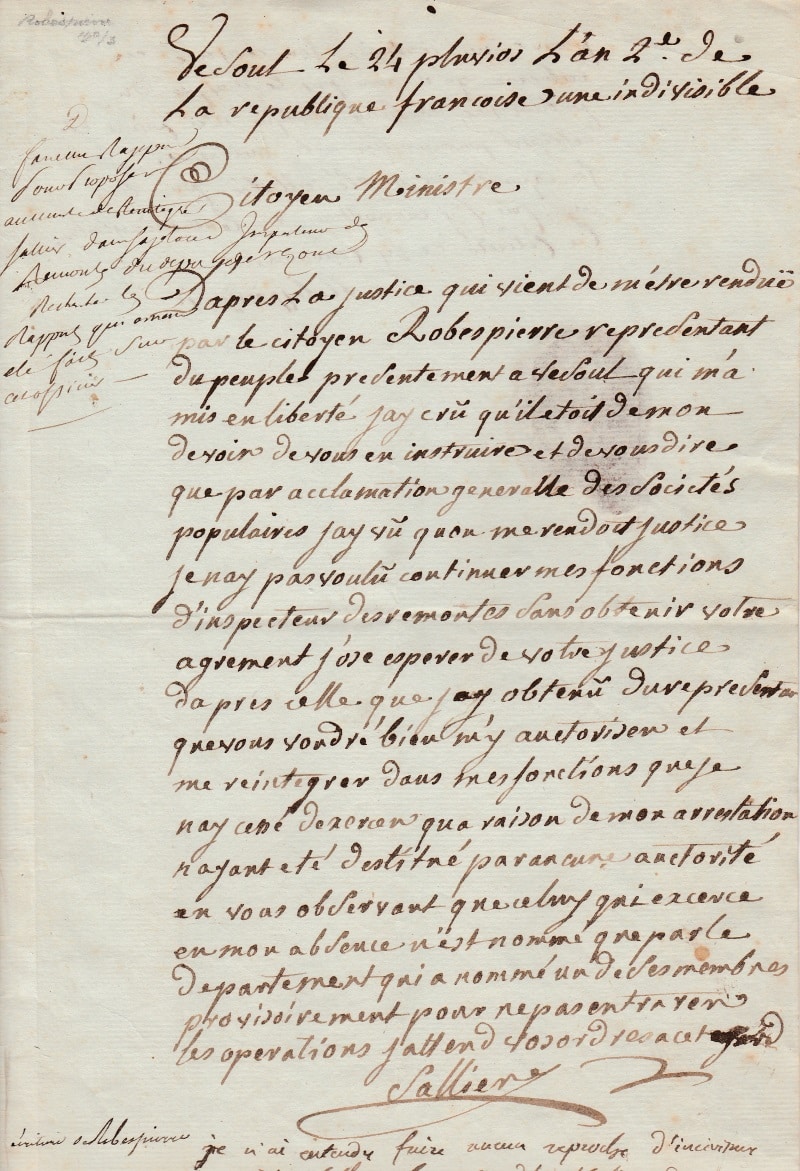 Robespierre
Vesoul Le 24 pluvios L'an 2e. de
La republique francoise une indivisible
Citoyen Ministre
faire un Rapport
pour proposer
au ministre de Reintegrer
Sallier dans sa place Inspecteur de
Remonte du
Recherche les
Rapports qui
été faits sur
Dapres La justice qui vient de m'étre renduë
par le citoyen Robespierre representant
du peuple presentement a vesoul qui m'a
mis en liberté jay crû qu'il etoit de mon
devoir de vous en instruire et de vous dire
que par acclamation generalle des Societés
populaires jay vû quon me rendoit justice
je nay pas voulû continuer mes fonctions
d'inspecteur des remontes sans obtenir votre
agrement j'ose esperer de votre justice
dapres celle que jay obtenû du representan
que vous vondré bien m'y auctoriser et
me reintegrer dans mes fonctions que je
nay cessé dexercer qua raison de mon arrestation
nayant eté destitué par aucune auctorité
en vous observant que celuy qui excerce
en mon absence n'est nommé que par le
departement qui a nommé un de ses membres
provisoirement pour ne pas entraver
les operations jattend vos ordres a cet
Sallier
écriture de Robespierre
je n'ai entendu faire aucun reproche d'incivisme